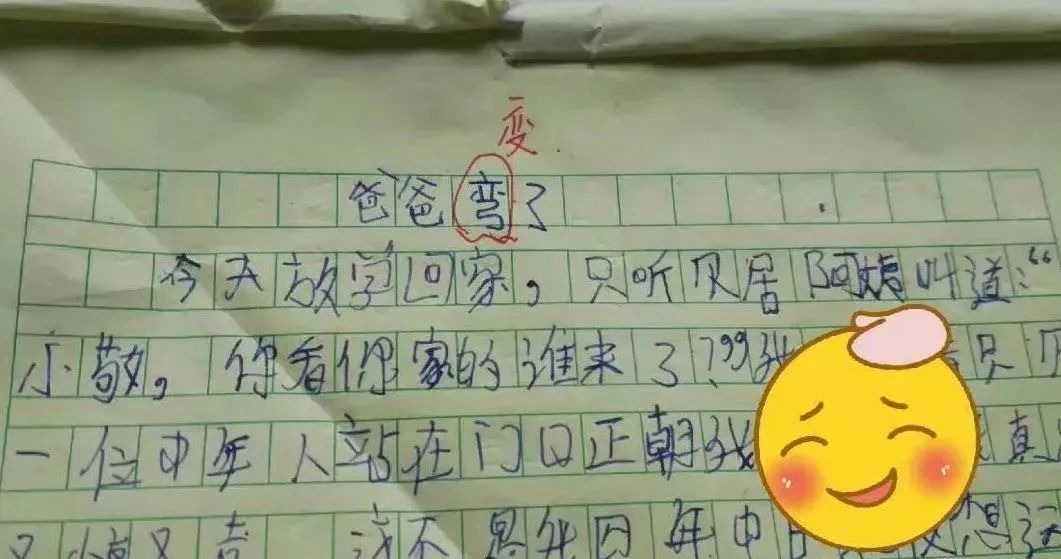 变
爸爸弯了
今天放学回家，只听见居阿姨叫道：“
小敬。你看你家的谁来了？”我只见
一位中年人站在门口正朝我真
又 又 这不是